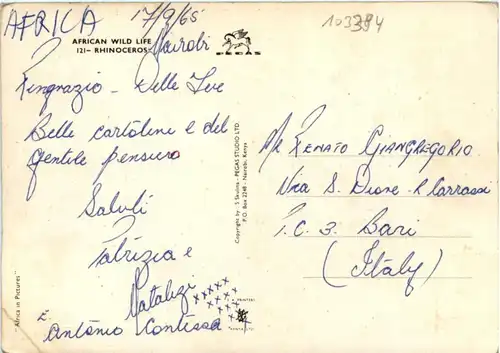 AFRICA
17/9/65
103394
AFRICAN WILD LIFE
121- RHINOCEROS
PEGAS
Nairobi
Ringrazio - delle Sue
Belle cartoline e del
gentile pensiero
Saluti
Patrizia e
Natalizi
E.
Antonio Contessa
"Africa in Pictures"
Copyright by S Skulina - PEGAS STUDIO LTD.
P.O. Box 2248 - Nairobi, Kenya
Mr RENATO GIANGREGORIO
Via S.
P.C. 3. Bari
(Italy)